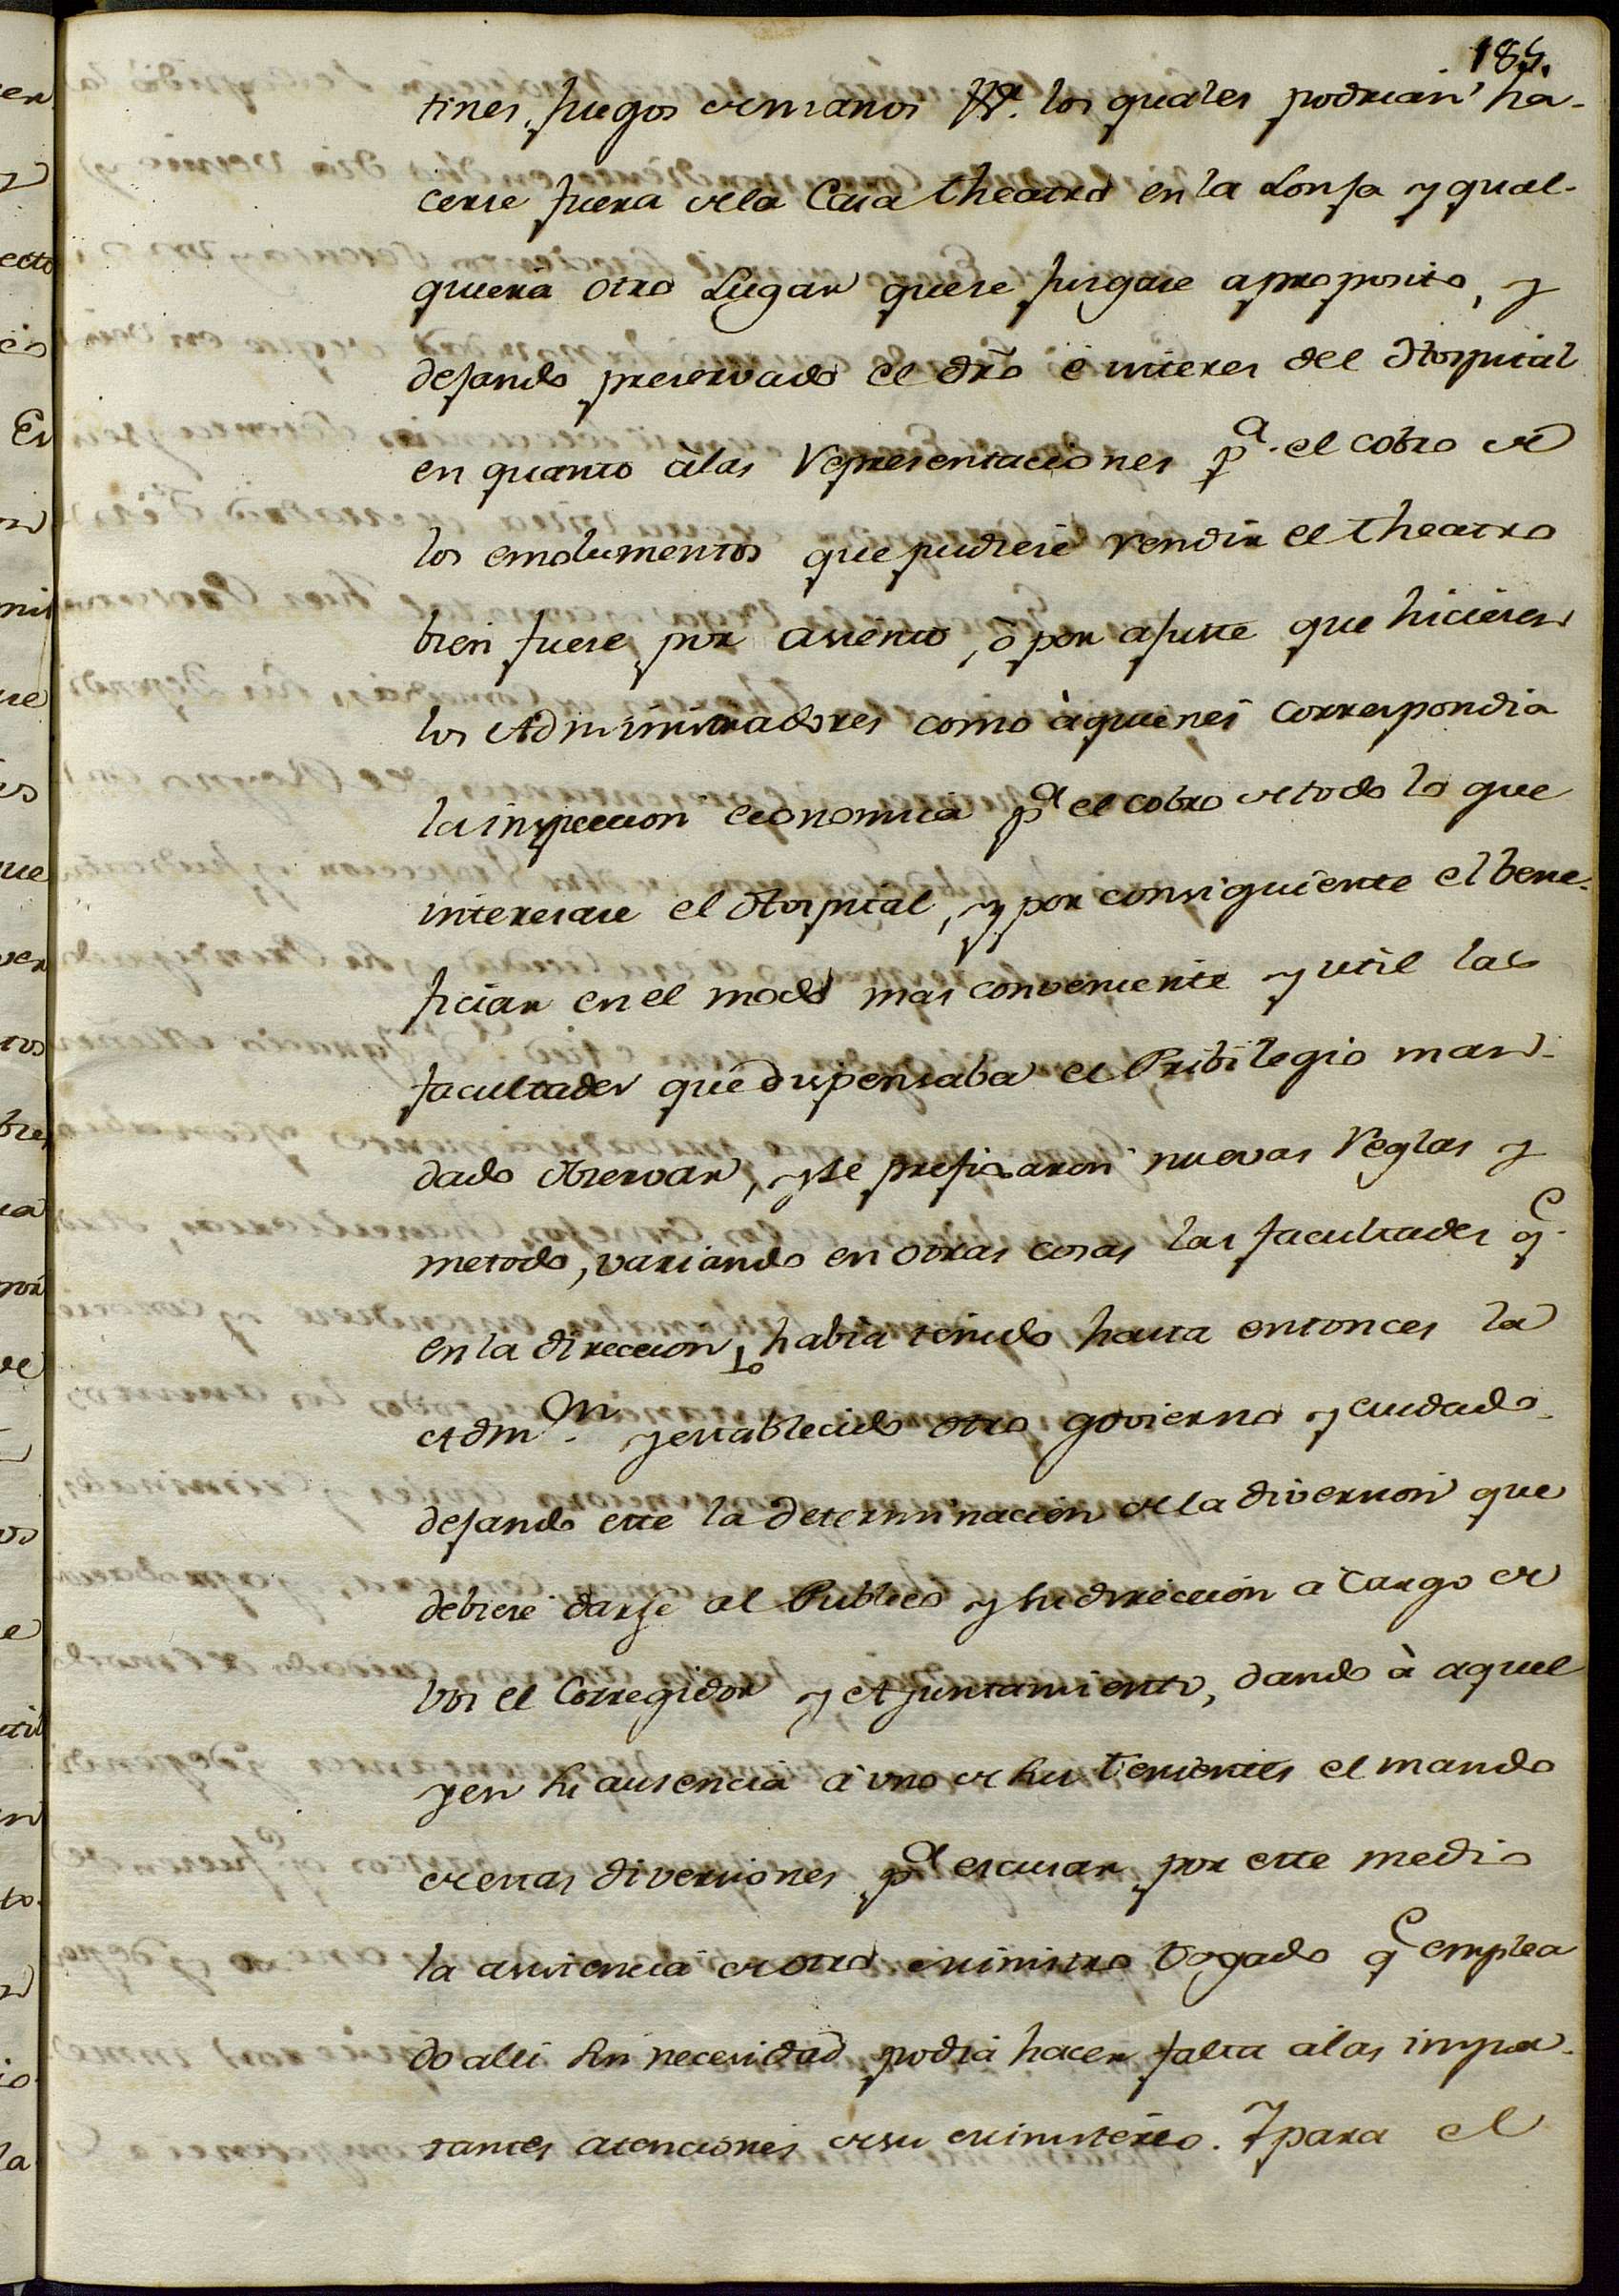 185.
tines, Juegos de manos &ª. los quales podrian ha-
cerse fuera dela Casa theatro en la Lonja y qual-
quiera otro Lugar quese jusgase aproposito, y
dejando preservado el dro è interes del Hospital
en quanto àlas Representaciones pª. el cobro de
los emolumentos que pudiese rendir el theatro
bien fuese por asiento, ò por ajuste que hiciesen
los Administradores como àquienes correspondia
la inspeccion economica pª el cobro de todo lo que
interesase el Hospital, y por consiguiente el bene-
ficiar en el modo mas conveniente y util las
facultades que dispensaba el Pribilegio man-
dado observar, y se prefixaron nuevas Reglas y
metodo, variando en otras cosas las facultades qe.
en la direccion habia tenido hasta entonces la
Admon. y establecido otro govierno y cuidado
dejando este la determinacion dela diversion que
debiese darse al Publico y su direccion a cargo de
vos el Corregidor y Ayuntamiento, dando à aquel
y en su ausencia à uno de sus tenientes el mando
de estas diversiones pª escusar por este medio
la asistencia de otro Ministro togado qe emplea
do alli sin necesidad podia hacer falta àlas impor-
tantes atenciones de su Ministerio. Y para el
er
ecto
es
Es
que
ver
tos
bre,
por
de
util
to.
la